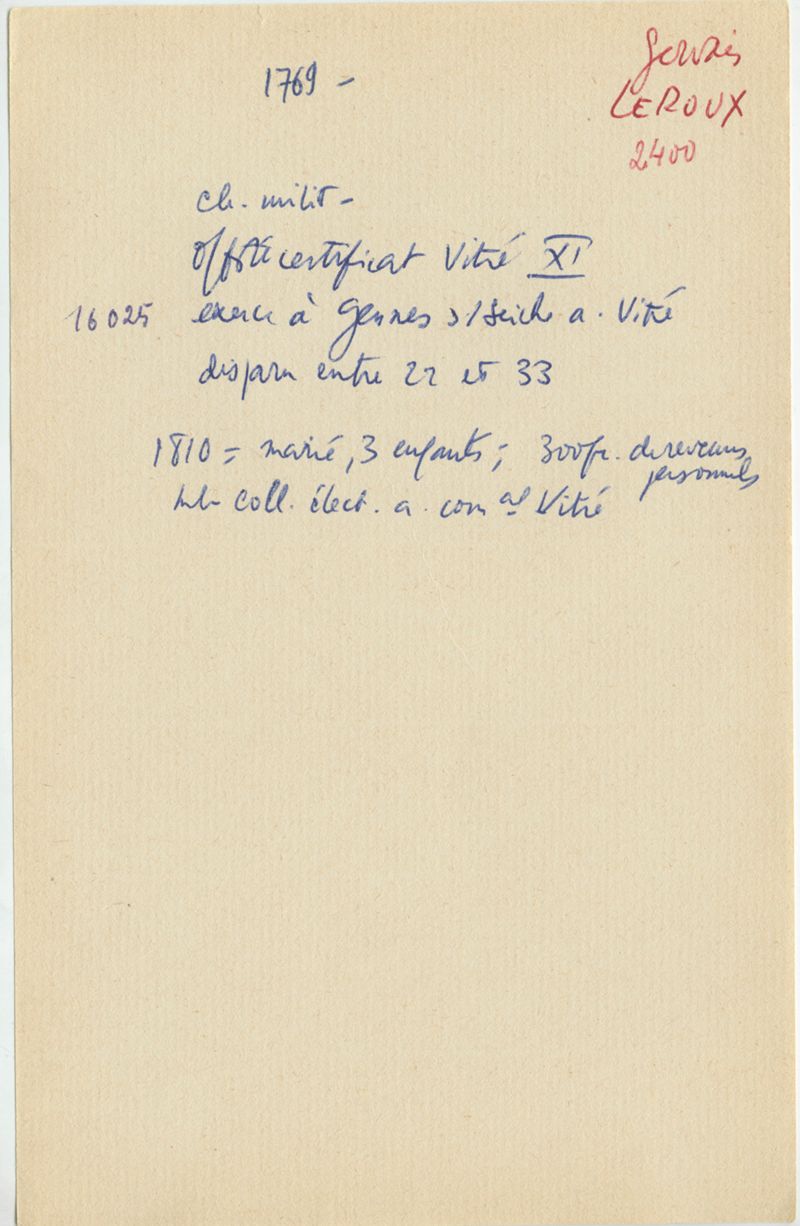 Gervais
LEROUX
2400
1769 -
ch. milit -
off sté certificat Vitré XI
16025 exerce à Gennes s/Seiche a. Vitré
disparu entre 22 et 33
1810 = marié, 3 enfants ; 300 fr. de revenus
personnels
mb Coll. élect. a. com al Vitré